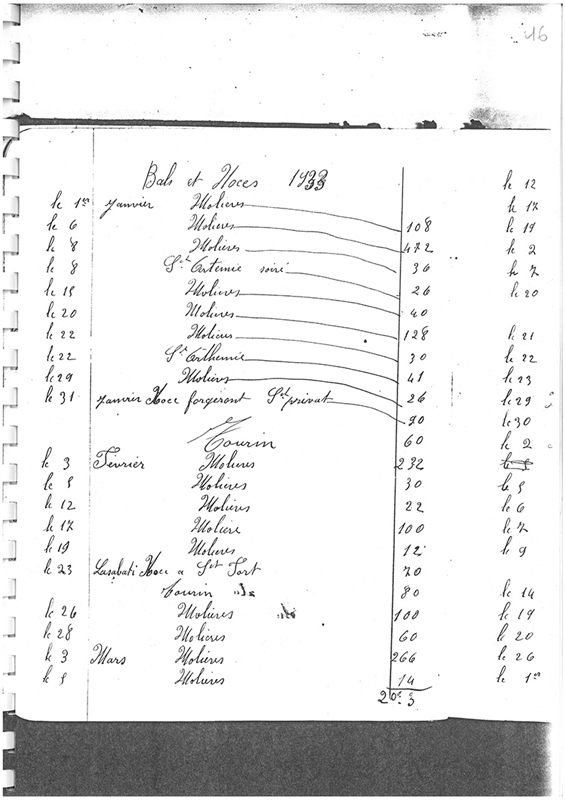 46
Bals et Noces 1933
le 1er Janvier Molieres 108
le 6 Molières 472
le 8 Molières 36
le 8 Ste Artemie soiré 26
le 15 Molières 40
le 20 Molières 128
le 22 Molières 30
le 22 Ste Arthemie 41
le 29 Molières 26
le 31 Janvier Noce forgeront St privat 90
Tourin 60
le 3 Février Molieres 232
le 5 Molières 30
le 12 Molières 22
le 17 Molière 100
le 19 Molières 12
le 23 Lasabati Noce a St Fort 70
Tourin 80
le 26 Molières 100
le 28 Molières 60
le 3 Mars Molières 266
le 5 Molières 14
le 12
le 17
le 19
le 2
le 7
le 20
le 21
le 22
le 23
le 29
le 30
le 2
le 5
le 6
le 7
le 9
le 14
le 19
le 20
le 26
le 1er